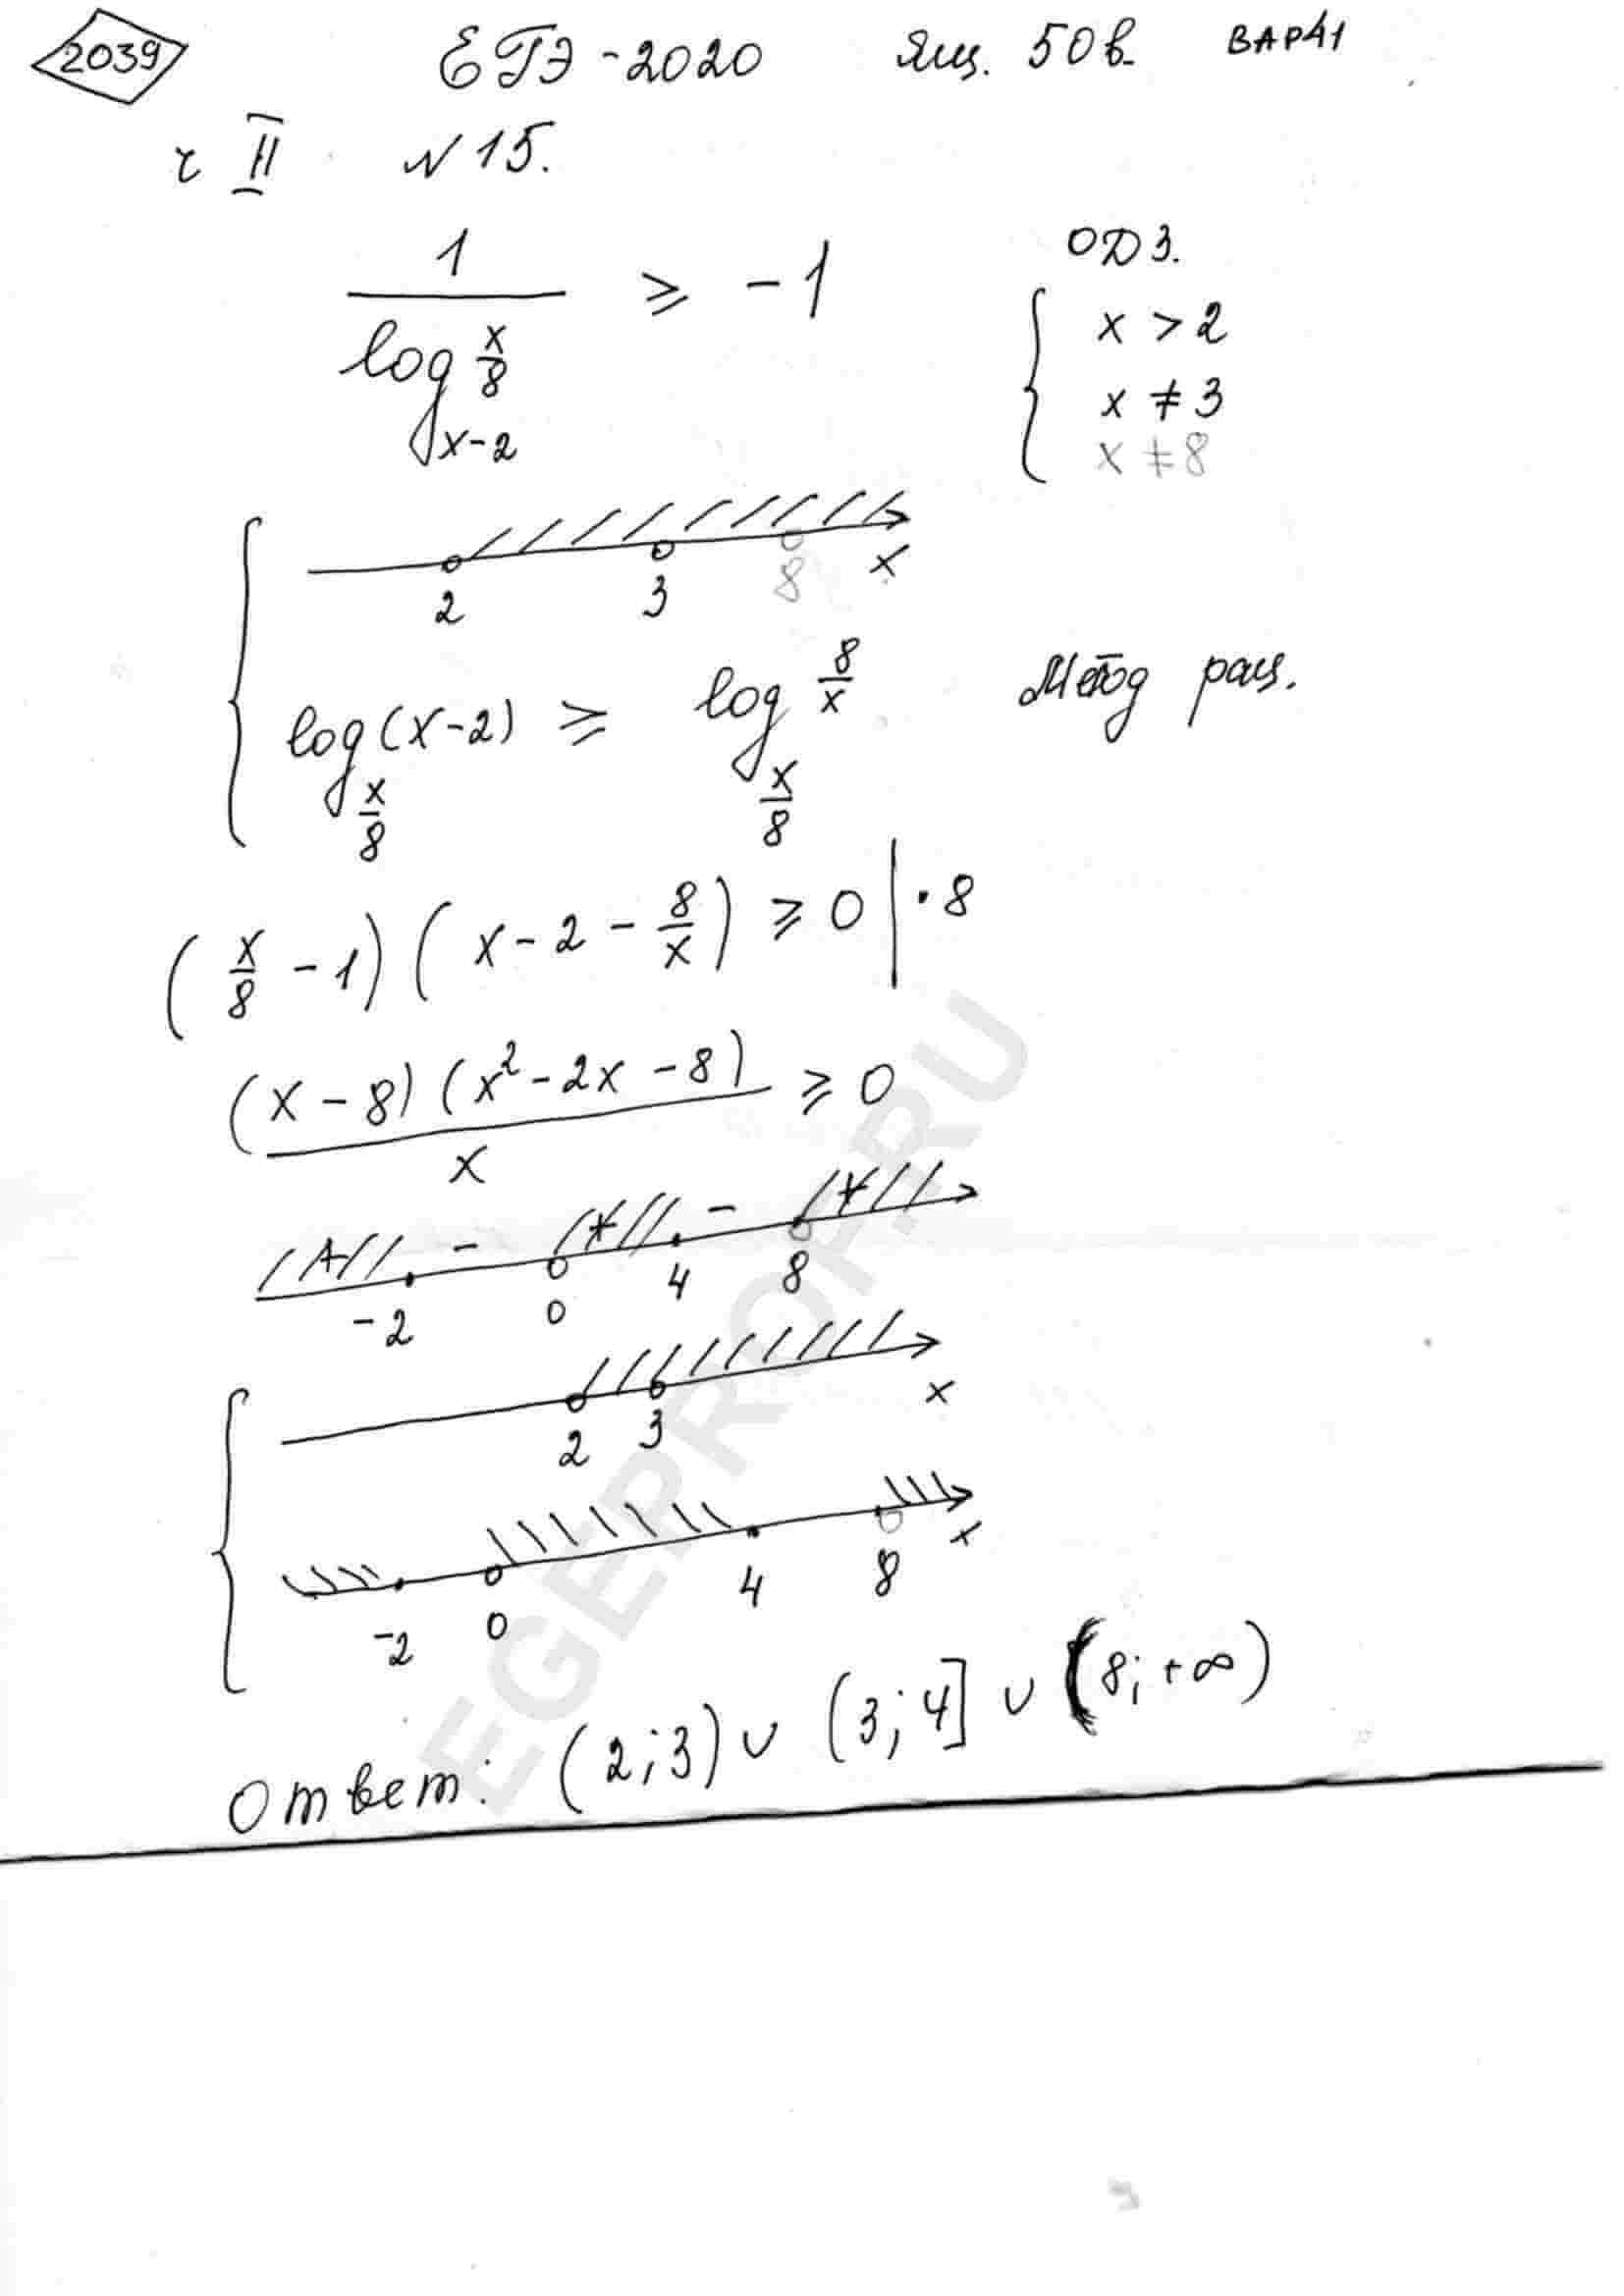 2039 ЕГЭ-2020 Ящ. 50в. ВАР41
ч II №15.
1/(log_{x-2} x/8) ≥ -1
ОДЗ.
{ x > 2
x ≠ 3
x ≠ 8
2 3 8 x
log_{x/8} (x-2) ≥ log_{x/8} 8/x Метод рац.
(x/8 - 1)(x - 2 - 8/x) ≥ 0 | · 8
(x-8)(x² - 2x - 8)/x ≥ 0
+ - + - +
-2 0 4 8
2 3 x
-2 0 4 8 x
Ответ: (2;3) ∪ (3;4] ∪ (8;+∞)
EGEPROF.RU